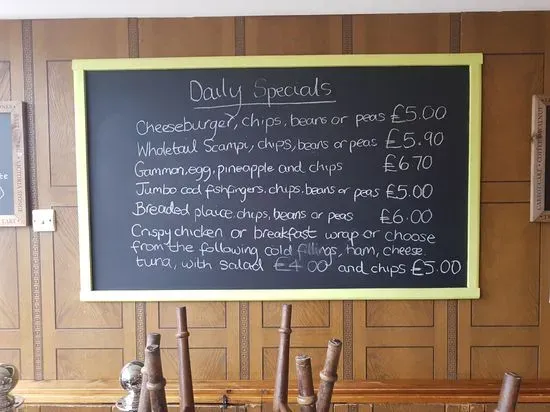 Daily Specials
Cheeseburger, chips, beans or peas £5.00
Wholetail Scampi, chips, beans or peas £5.90
Gammon, egg, pineapple and chips £6.70
Jumbo cod fishfingers, chips, beans or peas £5.00
Breaded plaice chips, beans or peas £6.00
Crispy chicken or breakfast wrap or choose
from the following cold fillings, ham, cheese
tuna, with salad £4.00 and chips £5.00